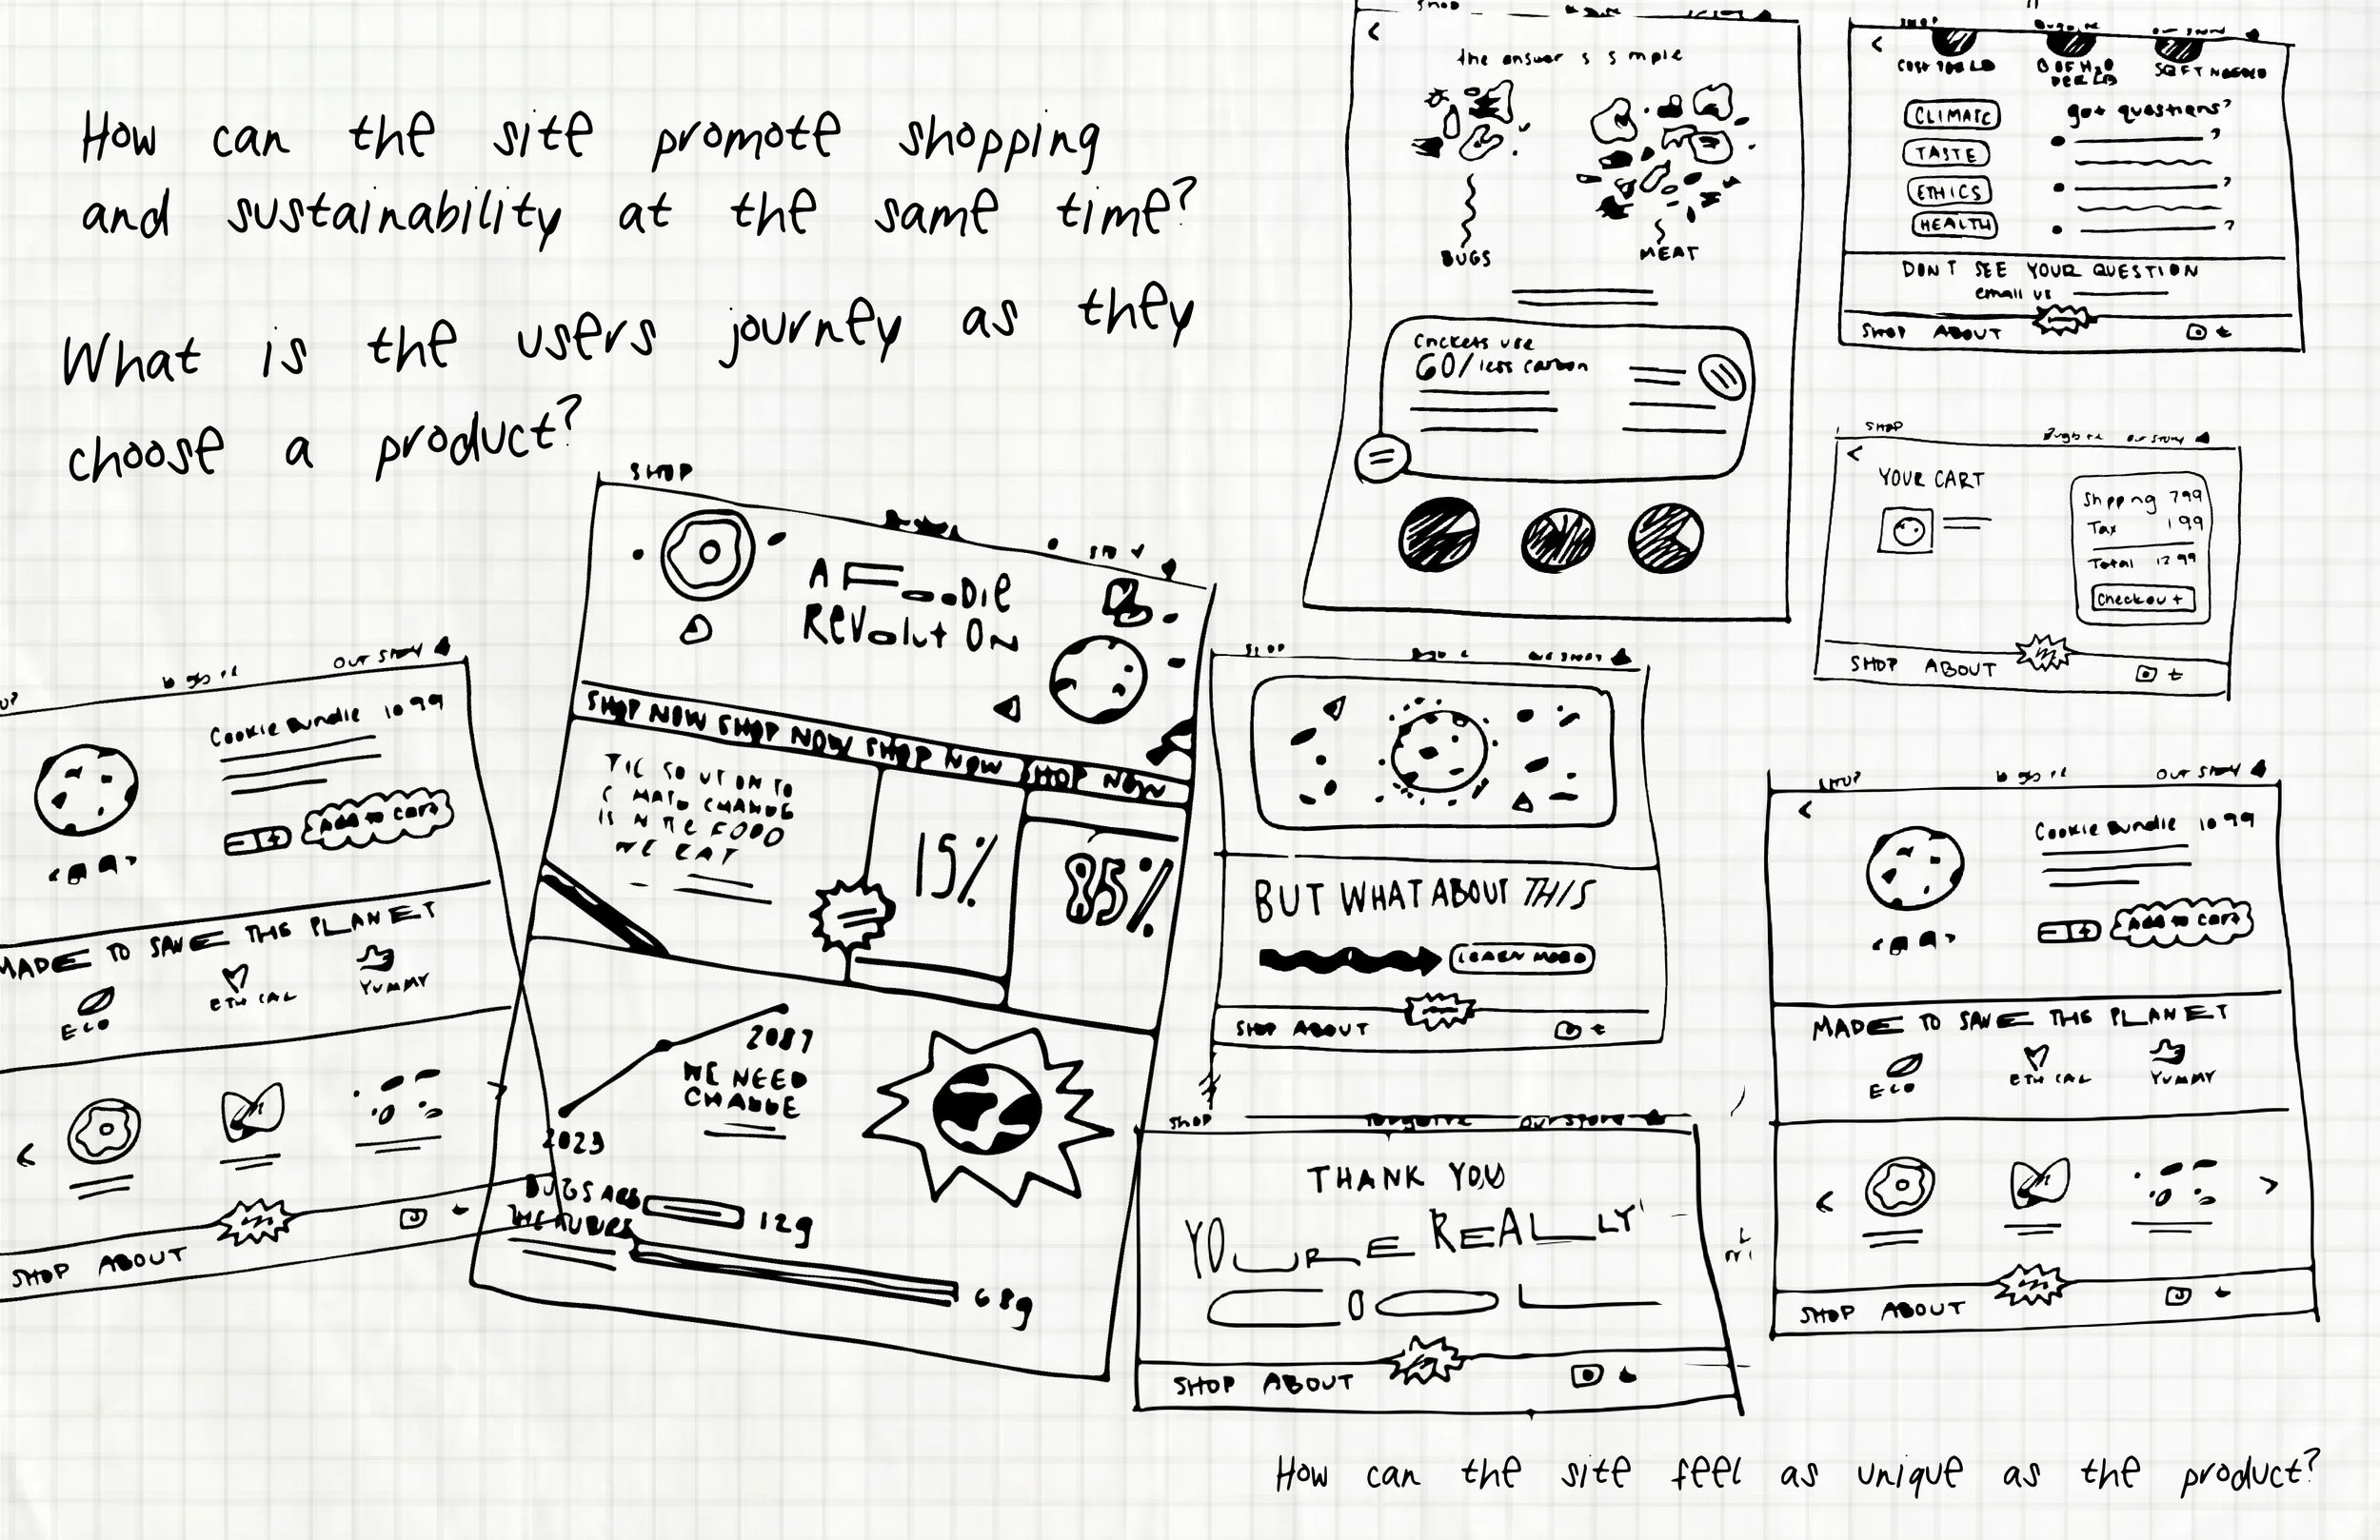 How can the site promote shopping
and sustainability at the same time?
What is the users journey as they
choose a product?
SHOP
A FOODIE
REVOLUTION
SHOP NOW SHOP NOW SHOP NOW SHOP NOW
WE EAT
15%
85%
2087
WE NEED
CHANGE
2023
BUGS ARE
12g
68g
OUR STORY
Cookie Bundle 10 99
Add to cart
MADE TO SAVE THE PLANET
ECO
ETHICAL
YUMMY
SHOP ABOUT
SHOP
the answer is simple
BUGS
MEAT
Crickets use
60/ less carbon
SHOP
COST PER LB
OF H2O
PER LB
SQFT NEEDED
CLIMATE
TASTE
ETHICS
HEALTH
got questions?
?
?
?
DONT SEE YOUR QUESTION
email us
SHOP ABOUT
SHOP
OUR STORY
YOUR CART
Shipping 799
Tax 199
Total 12 99
Checkout
SHOP ABOUT
SHOP
BUT WHAT ABOUT THIS
LEARN MORE
SHOP ABOUT
SHOP
THANK YOU
YOURE REALLY
SHOP ABOUT
SHOP
OUR STORY
Cookie Bundle 10 99
Add to cart
MADE TO SAVE THE PLANET
ECO
ETHICAL
YUMMY
SHOP ABOUT
How can the site feel as unique as the product?